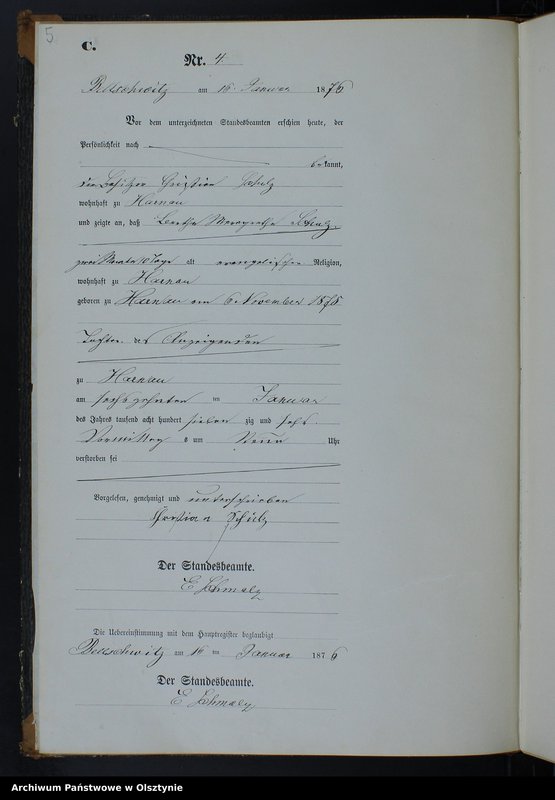 5.
C.
Nr. 4
am 16. Januar 1876
Vor dem unterzeichneten Standesbeamten erschien heute, der
Persönlichkeit nach
bekannt,
der Besitzer Christian Schulz
wohnhaft zu Harnau
und zeigte an, daß Bertha Margarethe Schulz,
zwei Monate 10 Tage alt evangelischer Religion,
wohnhaft zu Harnau
geboren zu Harnau am 6. November 1875
Tochter des Anzeigenden
zu Harnau
am sechszehnten Januar
des Jahres tausend acht hundert sieben zig und sechs
Vormittags um Neun Uhr
verstorben sei
Vorgelesen, genehmigt und unterschrieben
Christian Schulz
Der Standesbeamte.
E Schmalz
Die Uebereinstimmung mit dem Hauptregister beglaubigt
am 16 ten Januar 1876
Der Standesbeamte.
E Schmalz
Archiwum Państwowe w Olsztynie